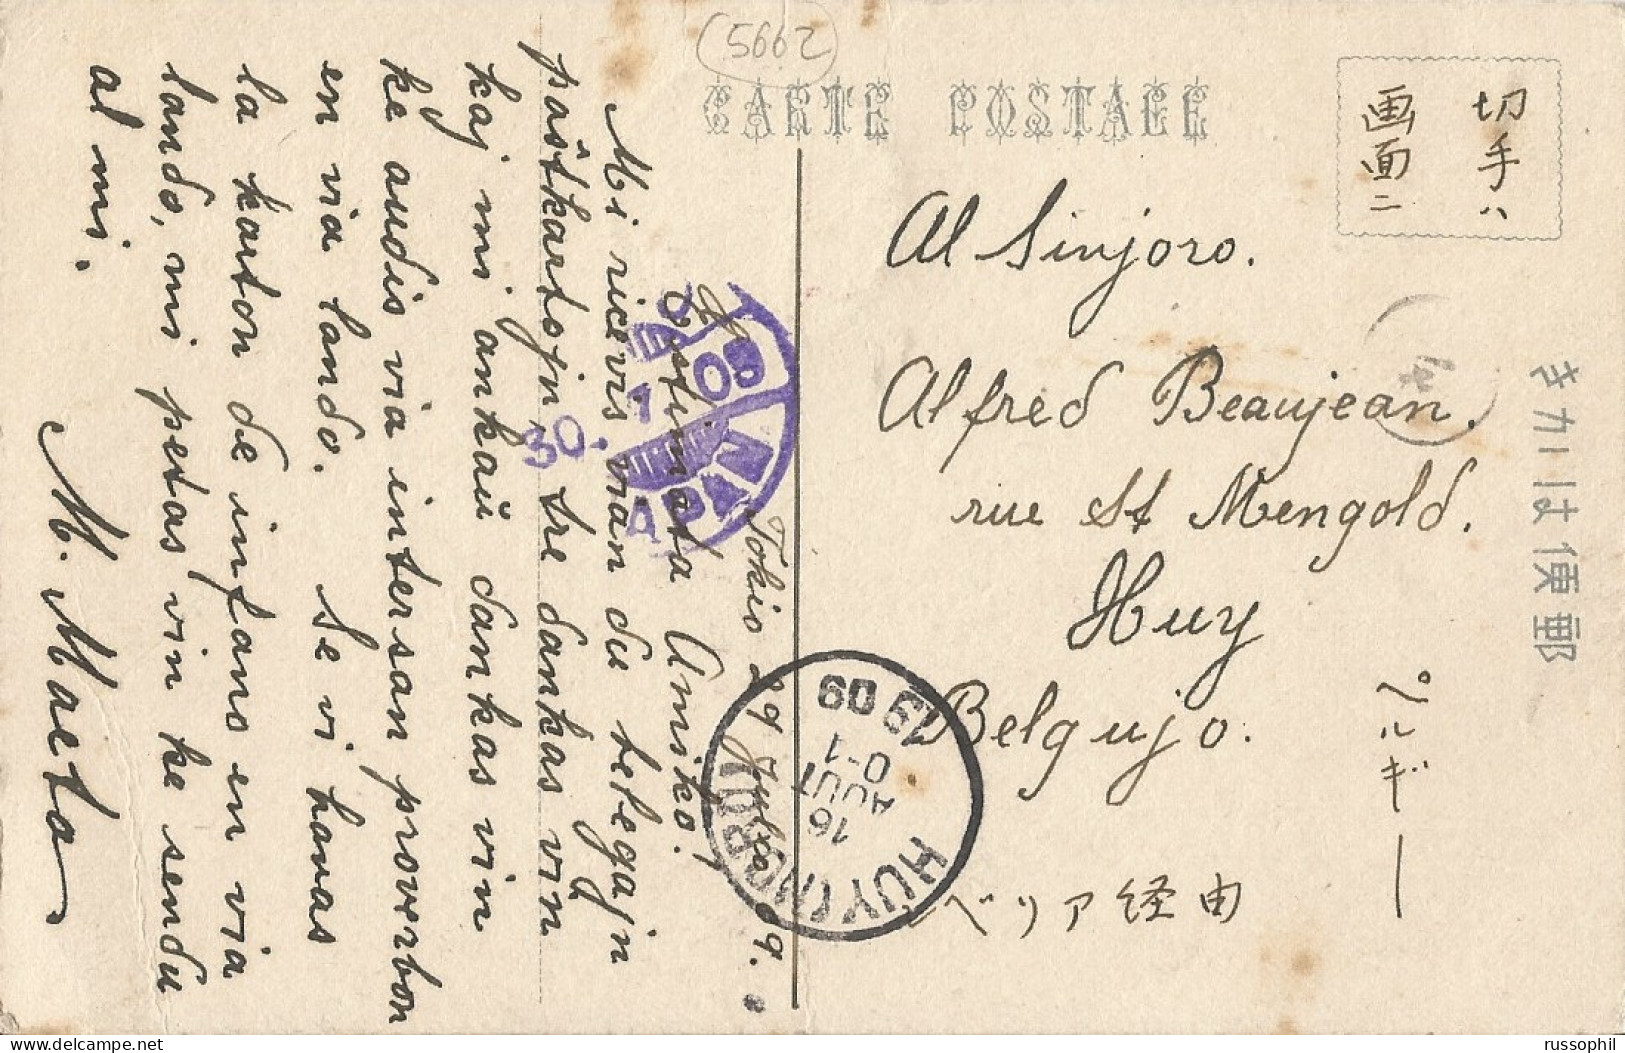 5662
CARTE POSTALE
切手ハ
画面ニ
きかは便郵
Al Sinjoro.
Alfred Beaujean.
rue St Mengold.
Huy
Belgujo.
ベルギー
シベリア経由
HUY (NORD)
16
AOUT
0-1
19 09
JAPAN
30. 7 09
Tokio 29 Julio 09.
Estimata Amiko!
Mi ricevis vian du belegajn
paŝtkartojn, tre dankas vin
kaj mi ankaŭ dankas vin
ke audis via intersan proverbon
en via lando. Se vi havas
la karton de infans en via
lando, mi petas vin ke sendu
al mi.
M. Maeta
www.delcampe.net
russophil